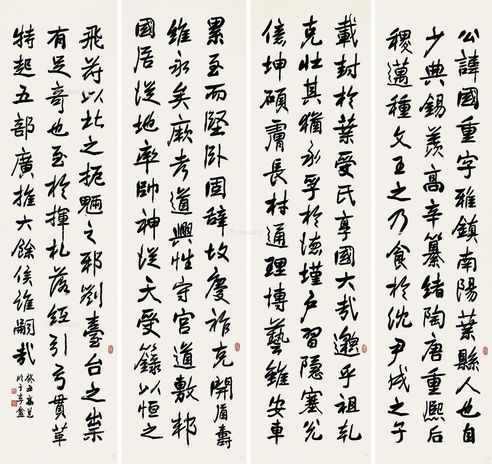 公諱國重字雅鎮南陽葉縣人也自
少典錫羨高辛纂緒陶唐重熙后
稷邁種文王之乃食於沈尹戍之子
載封於葉受氏享國大哉邈乎祖乾
克壯其猶永孚於德瑾戶習隱塞兌
億坤碩膚長材通理博藝雖安車
累至而堅臥固辭故慶祚克開眉壽
維永矣厥考道興性守官道敷邦
國居從地率帥神從天受籙以恒之
飛符以北之扼魎之邪劾臺台之祟
有足奇也至於揮札落紙引弓貫革
特起五部廣推六餘侯維嗣哉